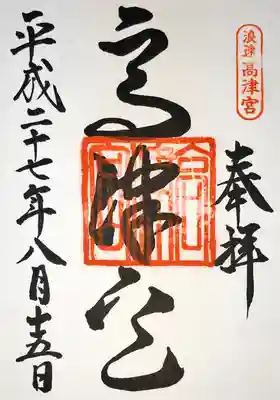 浪速
高津宮
奉拝
高津宮
平成二十七年八月十五日